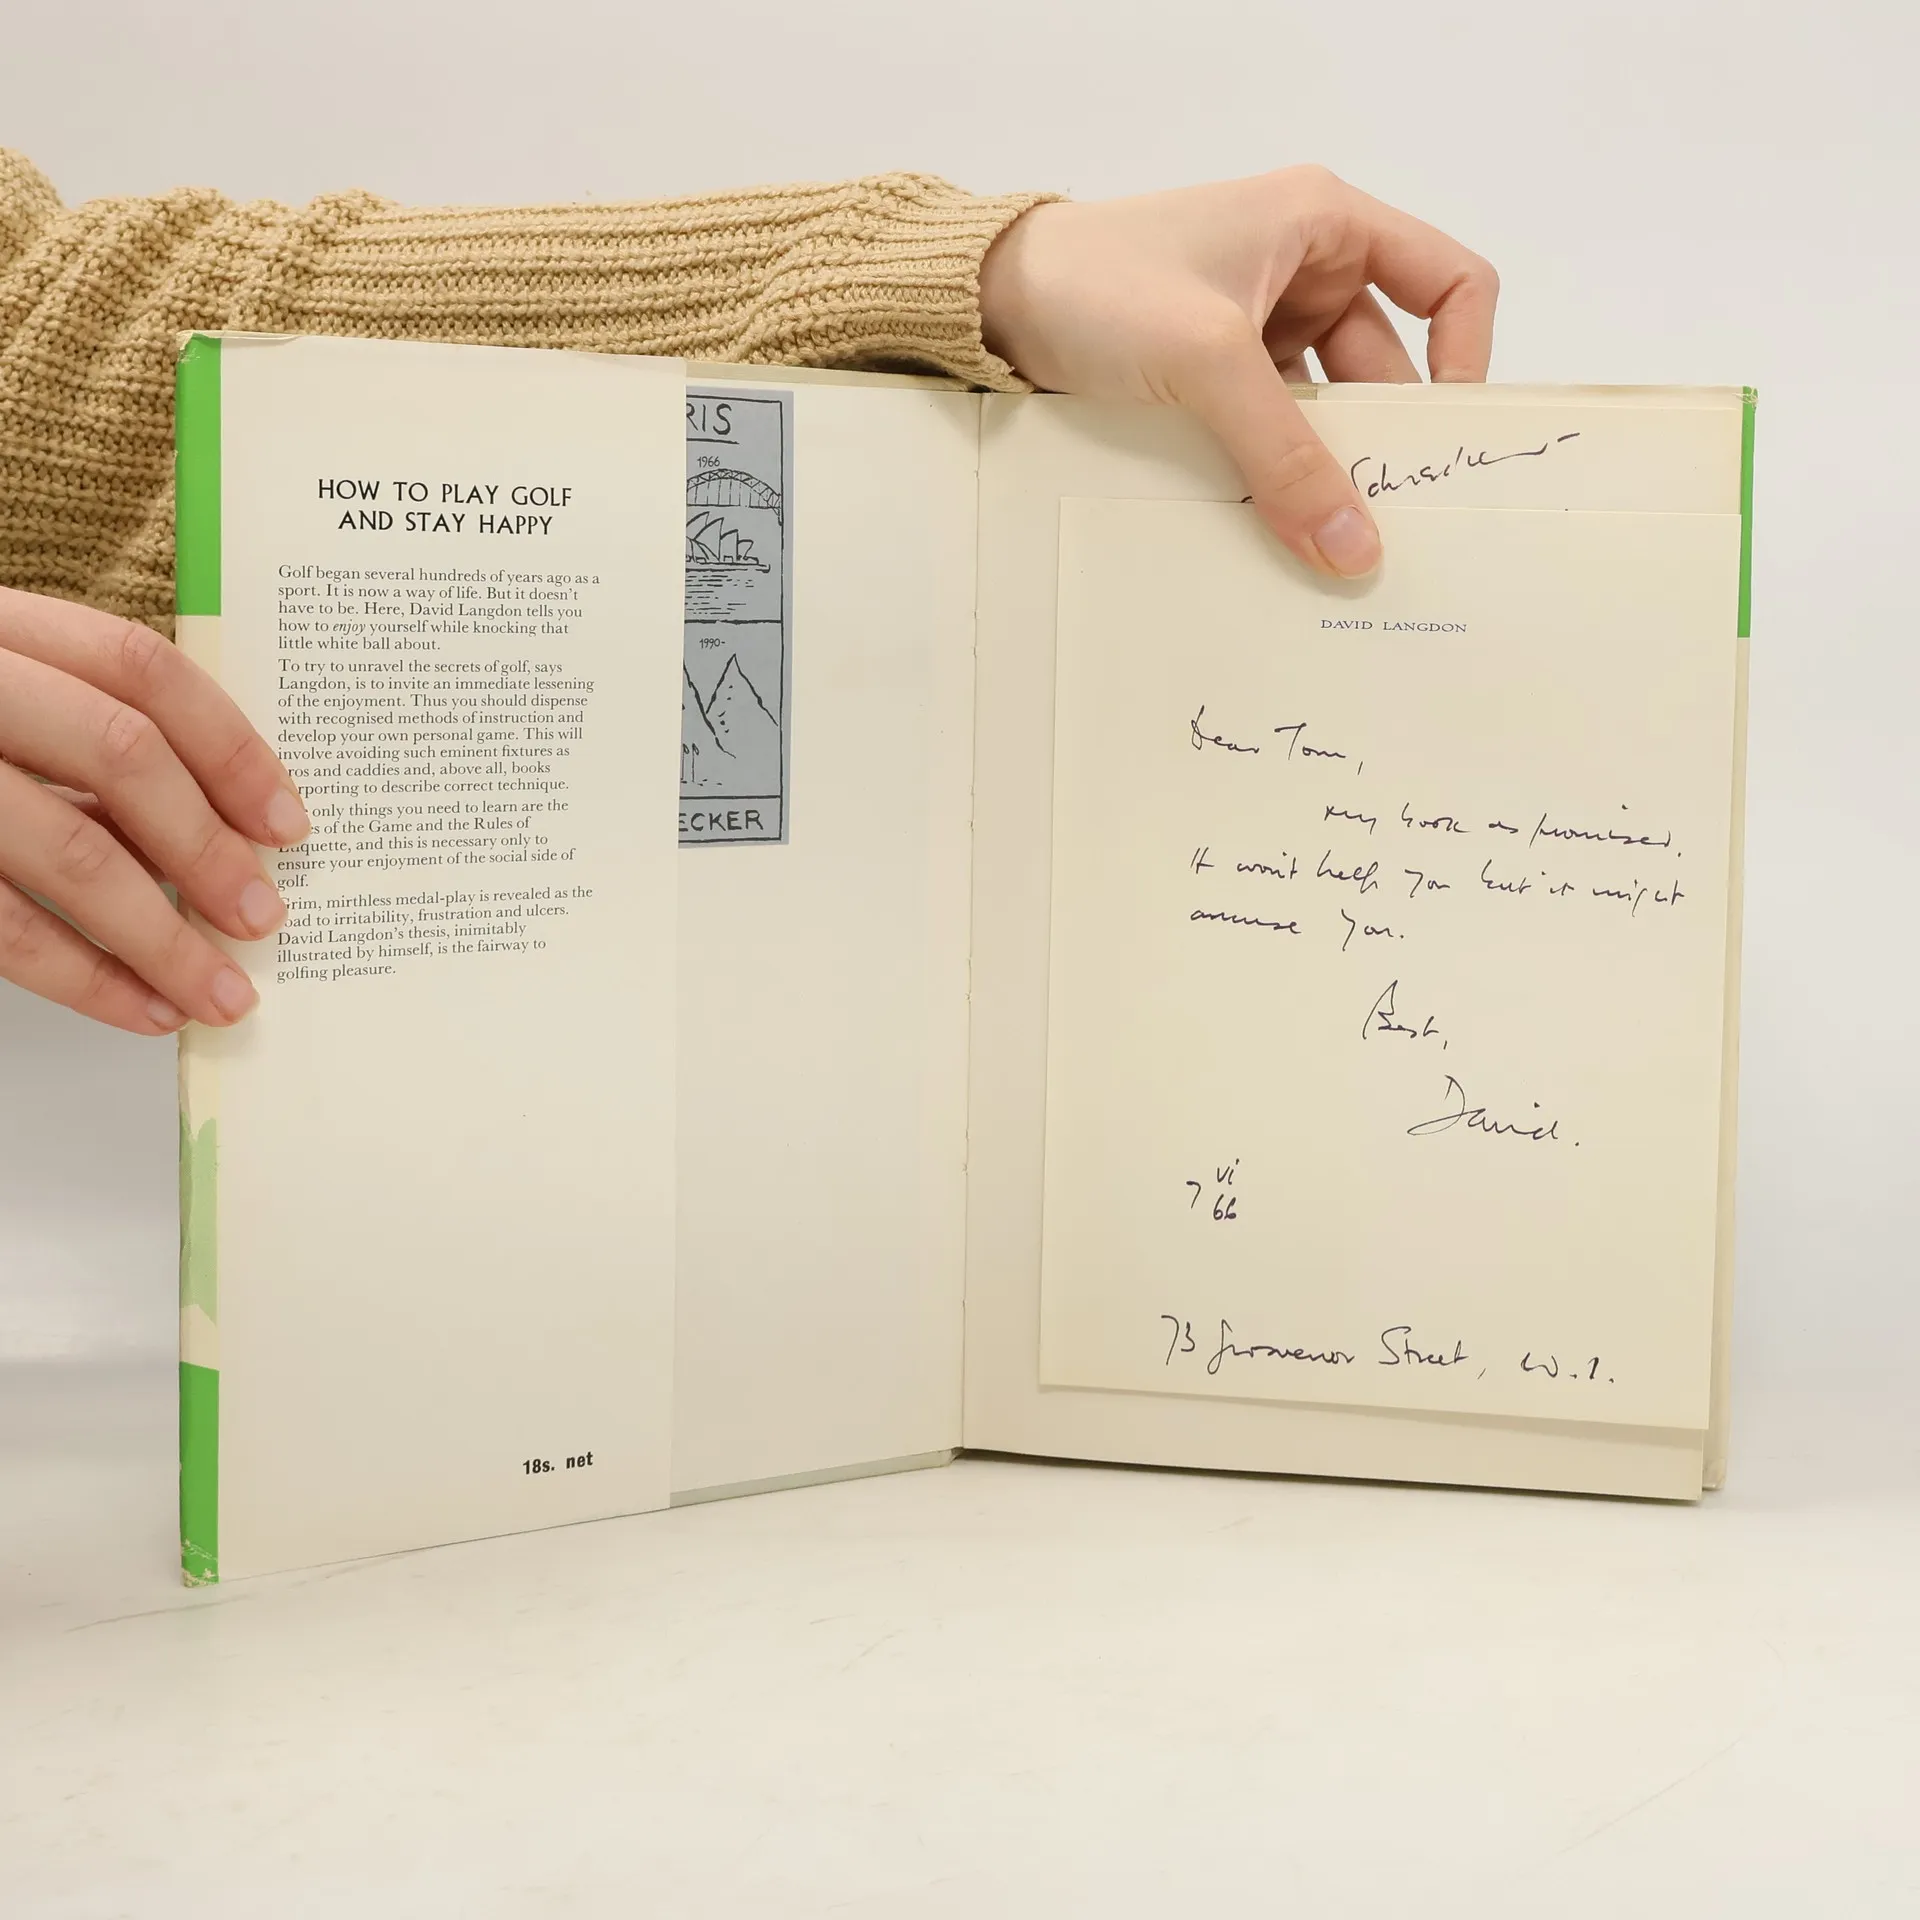 HOW TO PLAY GOLF
AND STAY HAPPY
Golf began several hundreds of years ago as a
sport. It is now a way of life. But it doesn't
have to be. Here, David Langdon tells you
how to enjoy yourself while knocking that
little white ball about.
To try to unravel the secrets of golf, says
Langdon, is to invite an immediate lessening
of the enjoyment. Thus you should dispense
with recognised methods of instruction and
develop your own personal game. This will
involve avoiding such eminent fixtures as
ros and caddies and, above all, books
rporting to describe correct technique.
only things you need to learn are the
es of the Game and the Rules of
quette, and this is necessary only to
ensure your enjoyment of the social side of
golf.
Grim, mirthless medal-play is revealed as the
oad to irritability, frustration and ulcers.
David Langdon's thesis, inimitably
illustrated by himself, is the fairway to
golfing pleasure.
18s. net
RIS
1966
1990-
ECKER
DAVID LANGDON
Dear Tom,
my book as promised.
It won't help you but it might
amuse you.
Best,
David.
7 vi
66
73 Grosvenor Street, W.1.